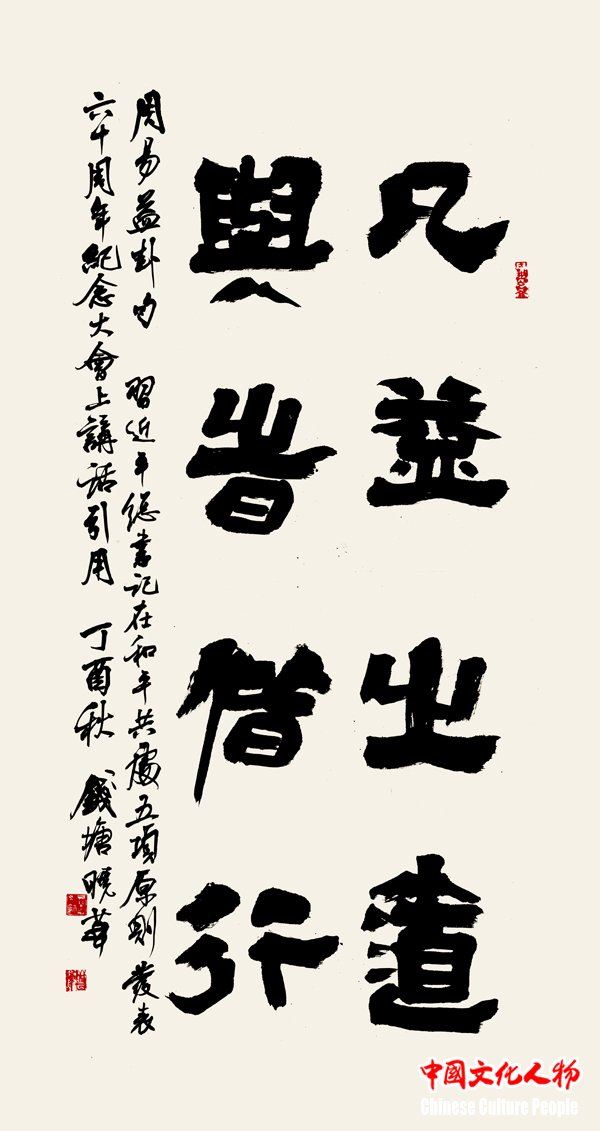 凡益之道
與旹偕行
周易益卦句 習近平緫書記在和平共處五項原則發表
六十周年紀念大會上講話引用 丁酉秋 錢塘曉
中国文化人物
Chinese Culture People